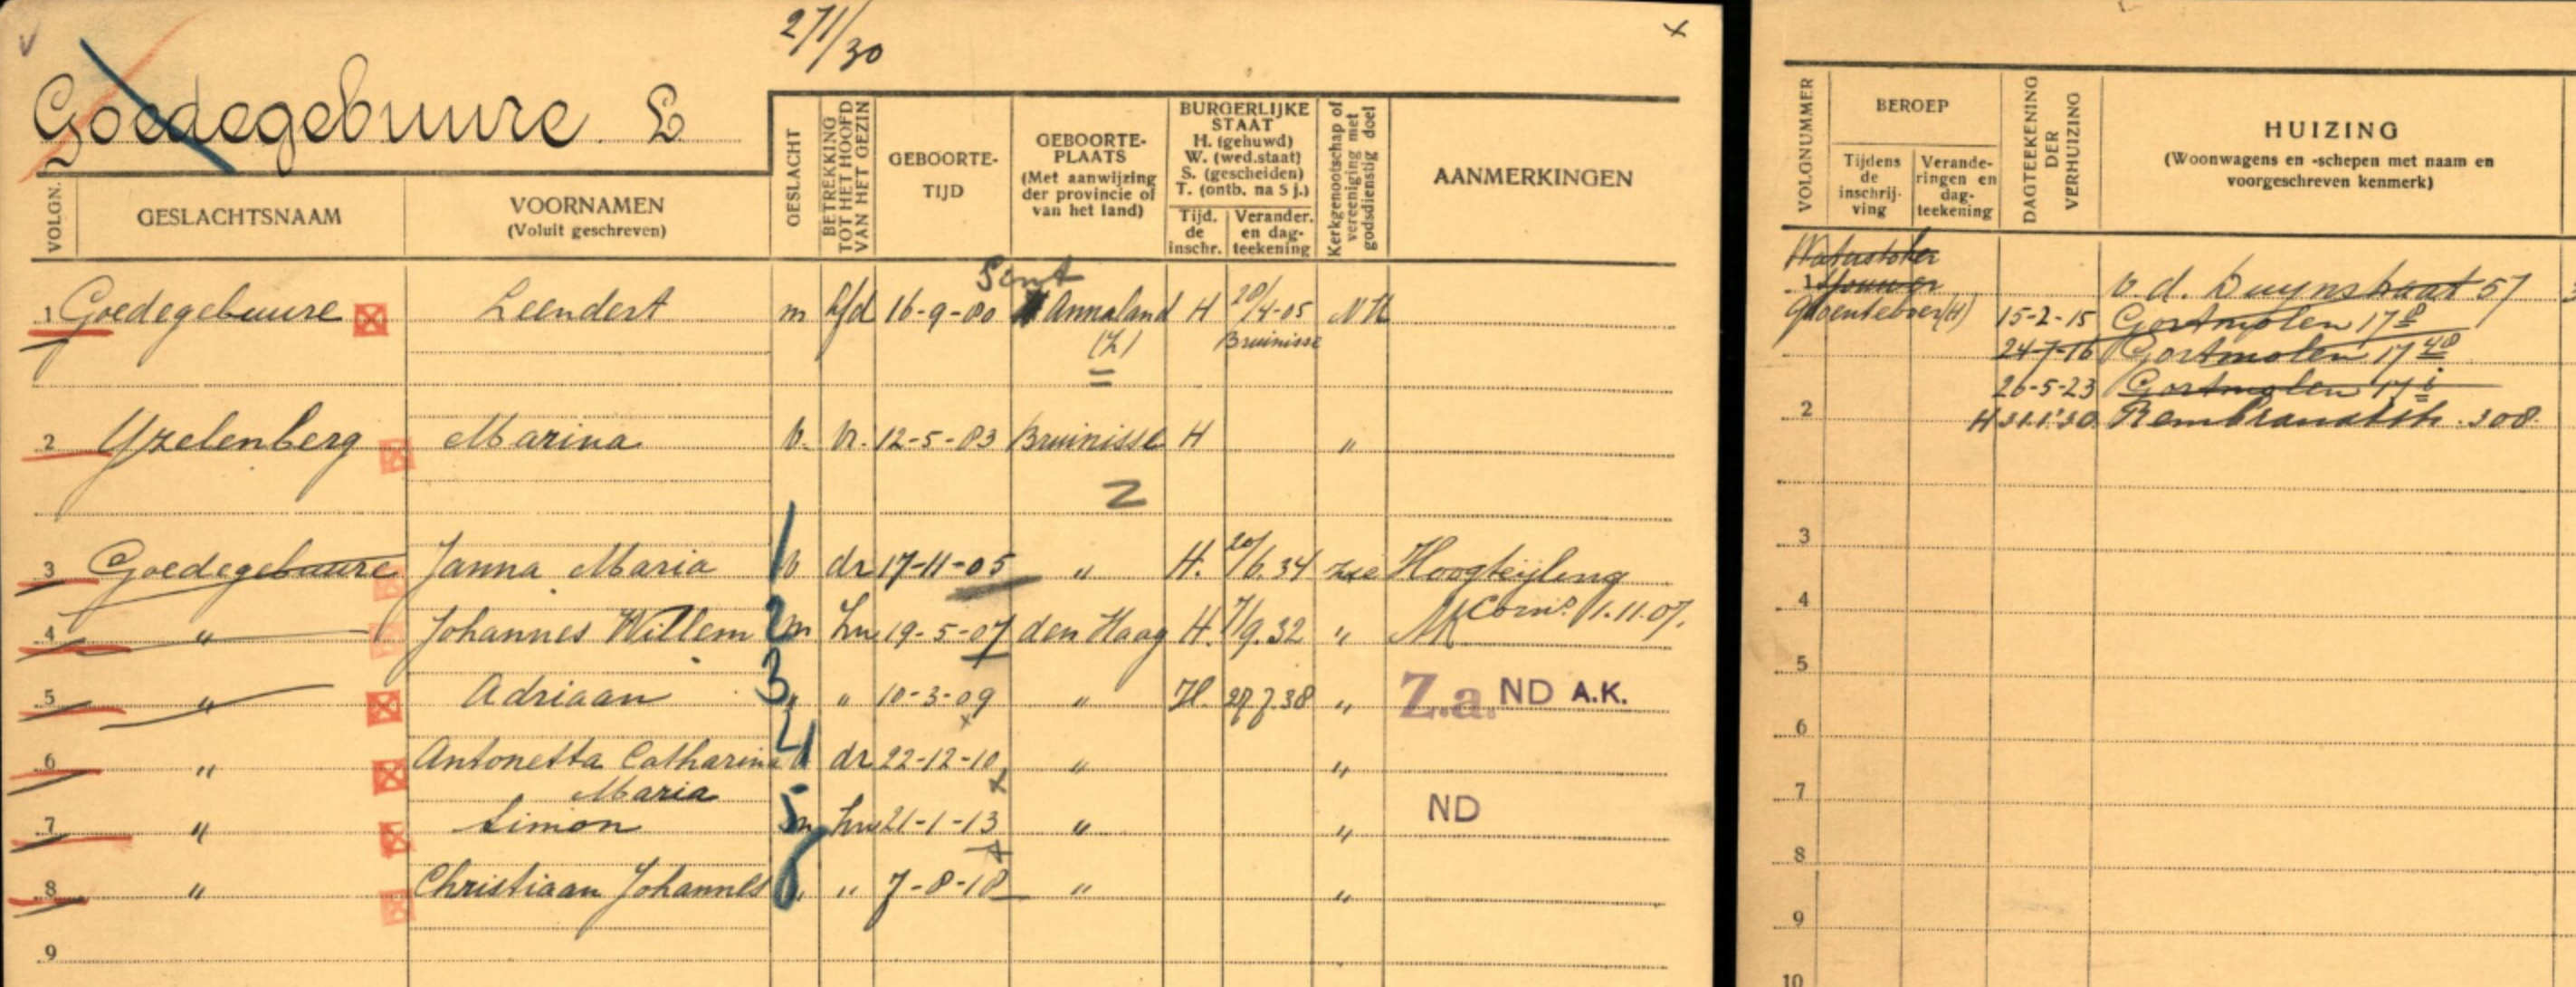 27/1/30
Goedegebuure. L
VOLGN.
GESLACHTSNAAM
VOORNAMEN
(Voluit geschreven)
GESLACHT
BETREKKING TOT HET HOOFD VAN HET GEZIN
GEBOORTE-
TIJD
GEBOORTE-
PLAATS
(Met aanwijzing
der provincie of
van het land)
BURGERLIJKE
STAAT
H. (gehuwd)
W. (wed.staat)
S. (gescheiden)
T. (ontb. na 5 j.)
Tijd.
de
inschr.
Verander.
en dag-
teekening
Kerkgenootschap of vereeniging met godsdienstig doel
AANMERKINGEN
Sint
1 Goedegebuure Leendert m hfd 16-9-80 Annaland H 20/4-05 NH
(Z) Bruinisse
2 Yzelenberg Marina v. vr. 12-5-83 Bruinisse H "
Z
3 Goedegebuure Janna Maria 1 v dr 17-11-05 " H. 20/6.34 Hoogteijling
Corns. 1.11.07.
4 " Johannes Willem 2 m zn 19-5-07 den Haag H. 7/9.32 "
5 " Adriaan 3 " " 10-3-09 " H. 27.7.38 " Z.a. ND A.K.
6 " Antonetta Catharina 4 dr 22-12-10 " "
Maria
7 " Simon 5 m zn 21-1-13 " " ND
8 " Christiaan Johannes 6 " 7-8-18 " "
9
VOLGNUMMER
BEROEP
Tijdens
de
inschrij-
ving
Verande-
ringen en
dag-
teekening
DAGTEEKENING DER VERHUIZING
HUIZING
(Woonwagens en -schepen met naam en
voorgeschreven kenmerk)
Waterstoker
1 v.d. Duynstraat 57
Groenteboer (H) 15-2-15 Gortmolen 17
24-7-16 Gortmolen 17
26-5-23 Gortmolen 17
2 H 31.1.'30. Rembrandtstr. 308.
3
4
5
6
7
8
9
10